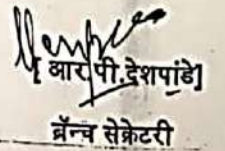 [आर.पी.देशपांडे]
ब्रॅन्च सेक्रेटरी